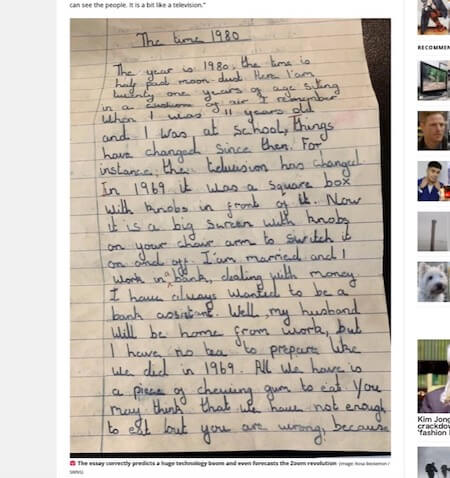 can see the people. It is a bit like a television."
The time 1980
The year is 1980, the time is
half past moon-dust. Here I am
twenty one years of age siting
in a cushion of air I remember
When I was 11 years old
and I was at School, things
have changed since then. For
instance, the television has changed.
In 1969 it was a square box
with knobs in front of it. Now
it is a big screen with knobs
on your chair arm to switch it
on and off. I'am married and I
work in a bank, dealing with money
I have always wanted to be a
bank assistant. Well, my husband
will be home from work, but
I have no tea to prepare like
we did in 1969. All we have is
a piece of chewing gum to eat. You
may think that we have not enough
to eat but you are wrong, because
The essay correctly predicts a huge technology boom and even forecasts the Zoom revolution (Image:
SWNS)
RECOMMEN
Kim Jong
crackdow
'fashion